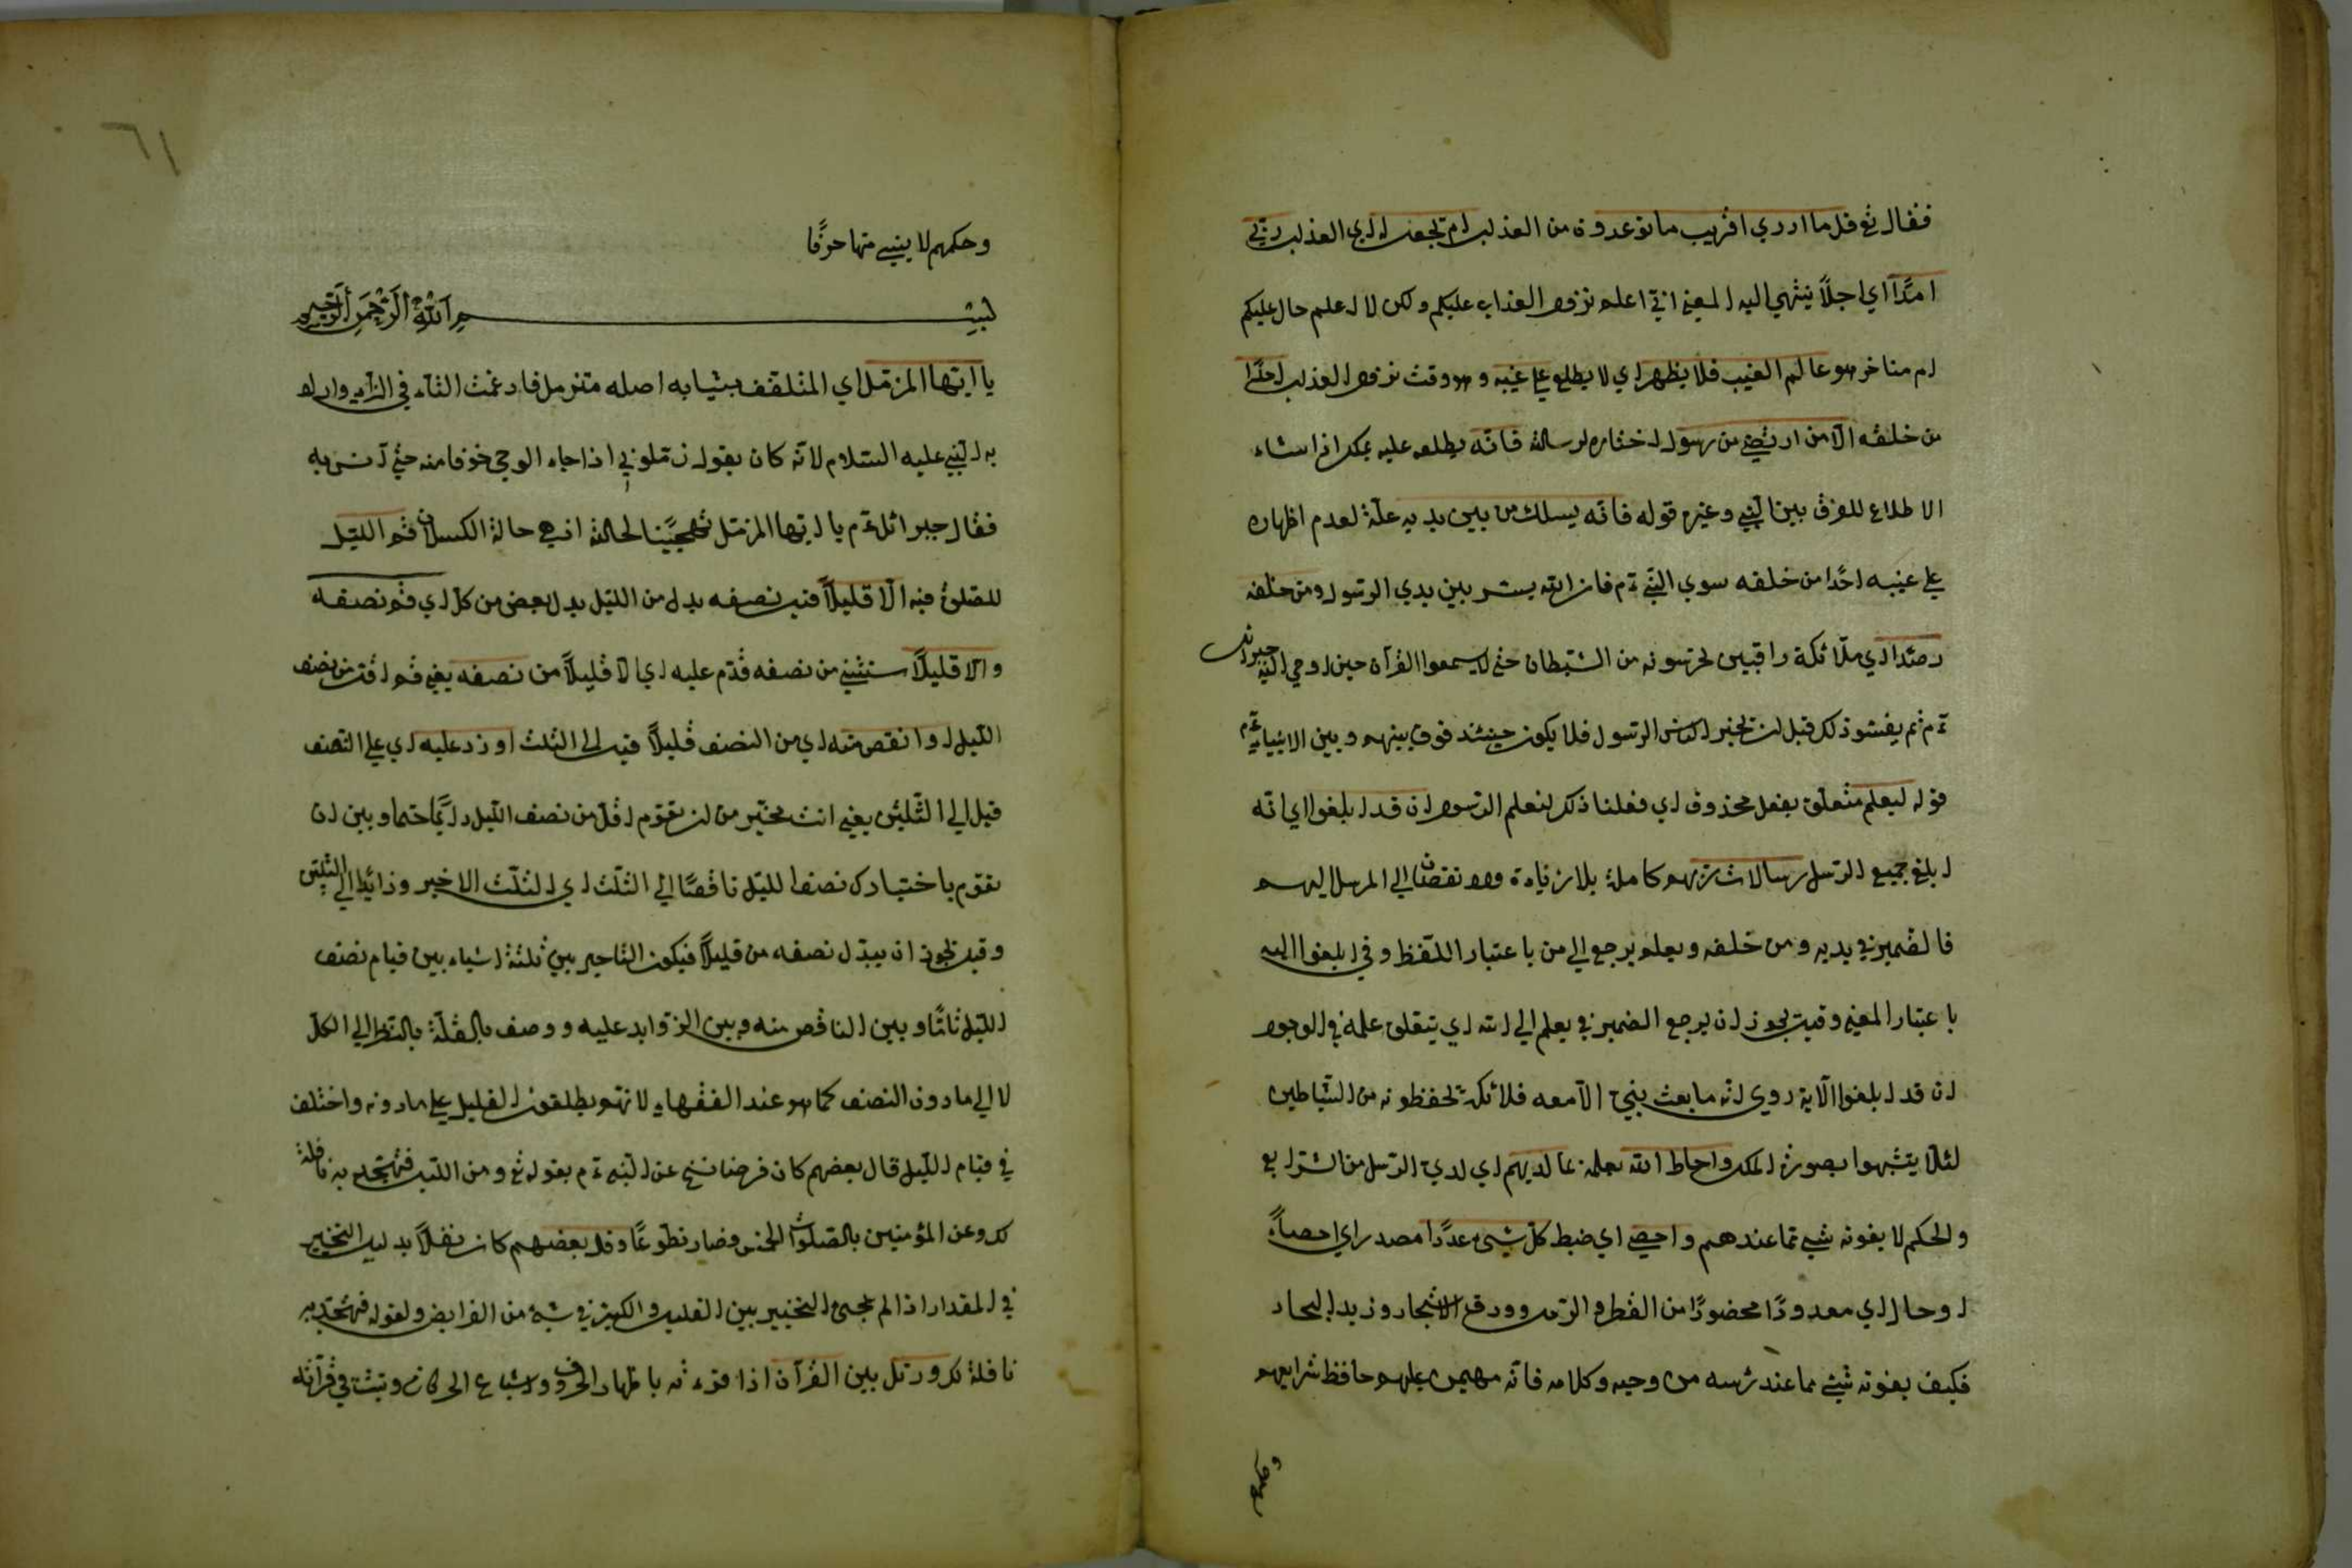 فقال تع قل ما ادري اقريب ما توعدون من العذاب ام تجعل له اي العذاب ربي
امدًا اي اجلًا ينتهي اليه المعني اني اعلم نزول العذاب عليكم ولكن لا اعلم حال عليكم
ام متاخر هو عالم الغيب فلا يظهر اي لا يطلع علي غيبه وهو وقت نزول العذاب احدًا
من خلقه الّا من ارتضي من رسول اختاره لرسالة فانّه يطلعه عليه يمكن اذا شاء
الاطلاع للفرق بين النبي وغيره قوله فانّه يسلك من بين يديه علّة لعدم اظهاره
علي غيبه احدًا من خلقه سوي النبي عم فان الله يستر بين يدي الرسول ومن خلفه
رصدًا اي ملائكة راقبين يحرسونه من الشيطان حتي لا يسمعوا القرآن حين اوحي اليه جبرائل
عم ثم يفشو ذلك قبل ان يخبر الناس الرسول فلا يكون حينئذ فرق بينهم وبين الانبياء عم
قوله ليعلم متعلق بفعل محذوف اي فعلنا ذلك لنعلم الرسول ان قد ابلغوا اي انّه
ابلغ جميع الرسل رسالات ربهم كاملة بلا زيادة ولا نقصان الي المرسل اليهم
فالضمير في يديه ومن خلفه ويعلم يرجع الي من باعتبار اللفظ وفي ابلغوا اليه
باعتبار المعني وقيل يجوز ان يرجع الضمير في يعلم الي الله اي يتعلق علمه في الوجود
ان قد ابلغوا الآية روي انّه ما بعث بنبيّ الّا معه ملائكة تحفظونه من الشياطين
لئلّا يتشبهوا بصورة الملك واحاط الله بعلمه بما لديهم اي لدي الرسل من الشرايع
والحكم لا يفوته شيء ممّا عندهم واحصي اي ضبط كلّ شيء عددًا مصدر اي احصاءً
او حال اي معدودًا محضورًا من القطر والرمل وورق الاشجار وزبد البحار
فكيف يفوته شيء مما عند رسله من وحيه وكلامه فانّه مهيمن عليهم حافظ شرايعهم
وحكمهم
٦١
وحكمهم لا ينسي منها حرفًا
بسم الله الرحمن الرحيم
يا ايّها المزمّل اي المتلفف بثيابه اصله متزمل فادغمت التاء في الزاي واراد
به النبي عليه السلام لانّه كان يقول زملوني اذا جاءه الوحي خوفا منه حتي آنس به
فقال جبرائل عم يا ايها المزمل تهجينًا لحالة اذ هي حالة الكسلان قم الليل
للصلوة فيه الّا قليلًا قيل نصفه بدل من الليل بدل بعض من كل اي قم نصفه
والّا قليلًا استثني من نصفه قدّم عليه اي الّا قليلًا من نصفه يعني قم اقل من نصف
الليل او انقص منه اي من النصف قليلًا قيل الي الثلث او زد عليه اي علي النصف
قيل الي الثلثين يعني انت مخيّر من ان تقوم اقل من نصف الليل دائمًا حتما وبين ان
تقوم باختيارك نصف الليل ناقصًا الي الثلث اي الثلث الاخير وزائدًا الي الثلثين
وقيل يجوز ان يبدل نصفه من قليلًا فيكون التاخير بين ثلثة اشياء بين قيام نصف
الليل تامًا وبين الناقص منه وبين الزوايد عليه ووصف بالقلّة بالنظر الي الكلّ
لا الي ما دون النصف كما هو عند الفقهاء لانهم يطلقون القليل علي ما دونه واختلف
في قيام الليل قال بعضهم كان فرضا نسخ عن النبي عم بقوله تع ومن الليل فتهجد به نافلة
لك وعن المؤمنين بالصلوات الخمس وصار تطوعًا وقال بعضهم كان نفلًا بدليل التخيير
في المقدار اذا لم يجيء التخيير بين القليل والكثير في شيء من الفرايض ولقوله فتهجد به
نافلة لك ورتل بين القرآن اذا قرءته باظهار الحروف واشباع الحركات وتبثت في قرآته